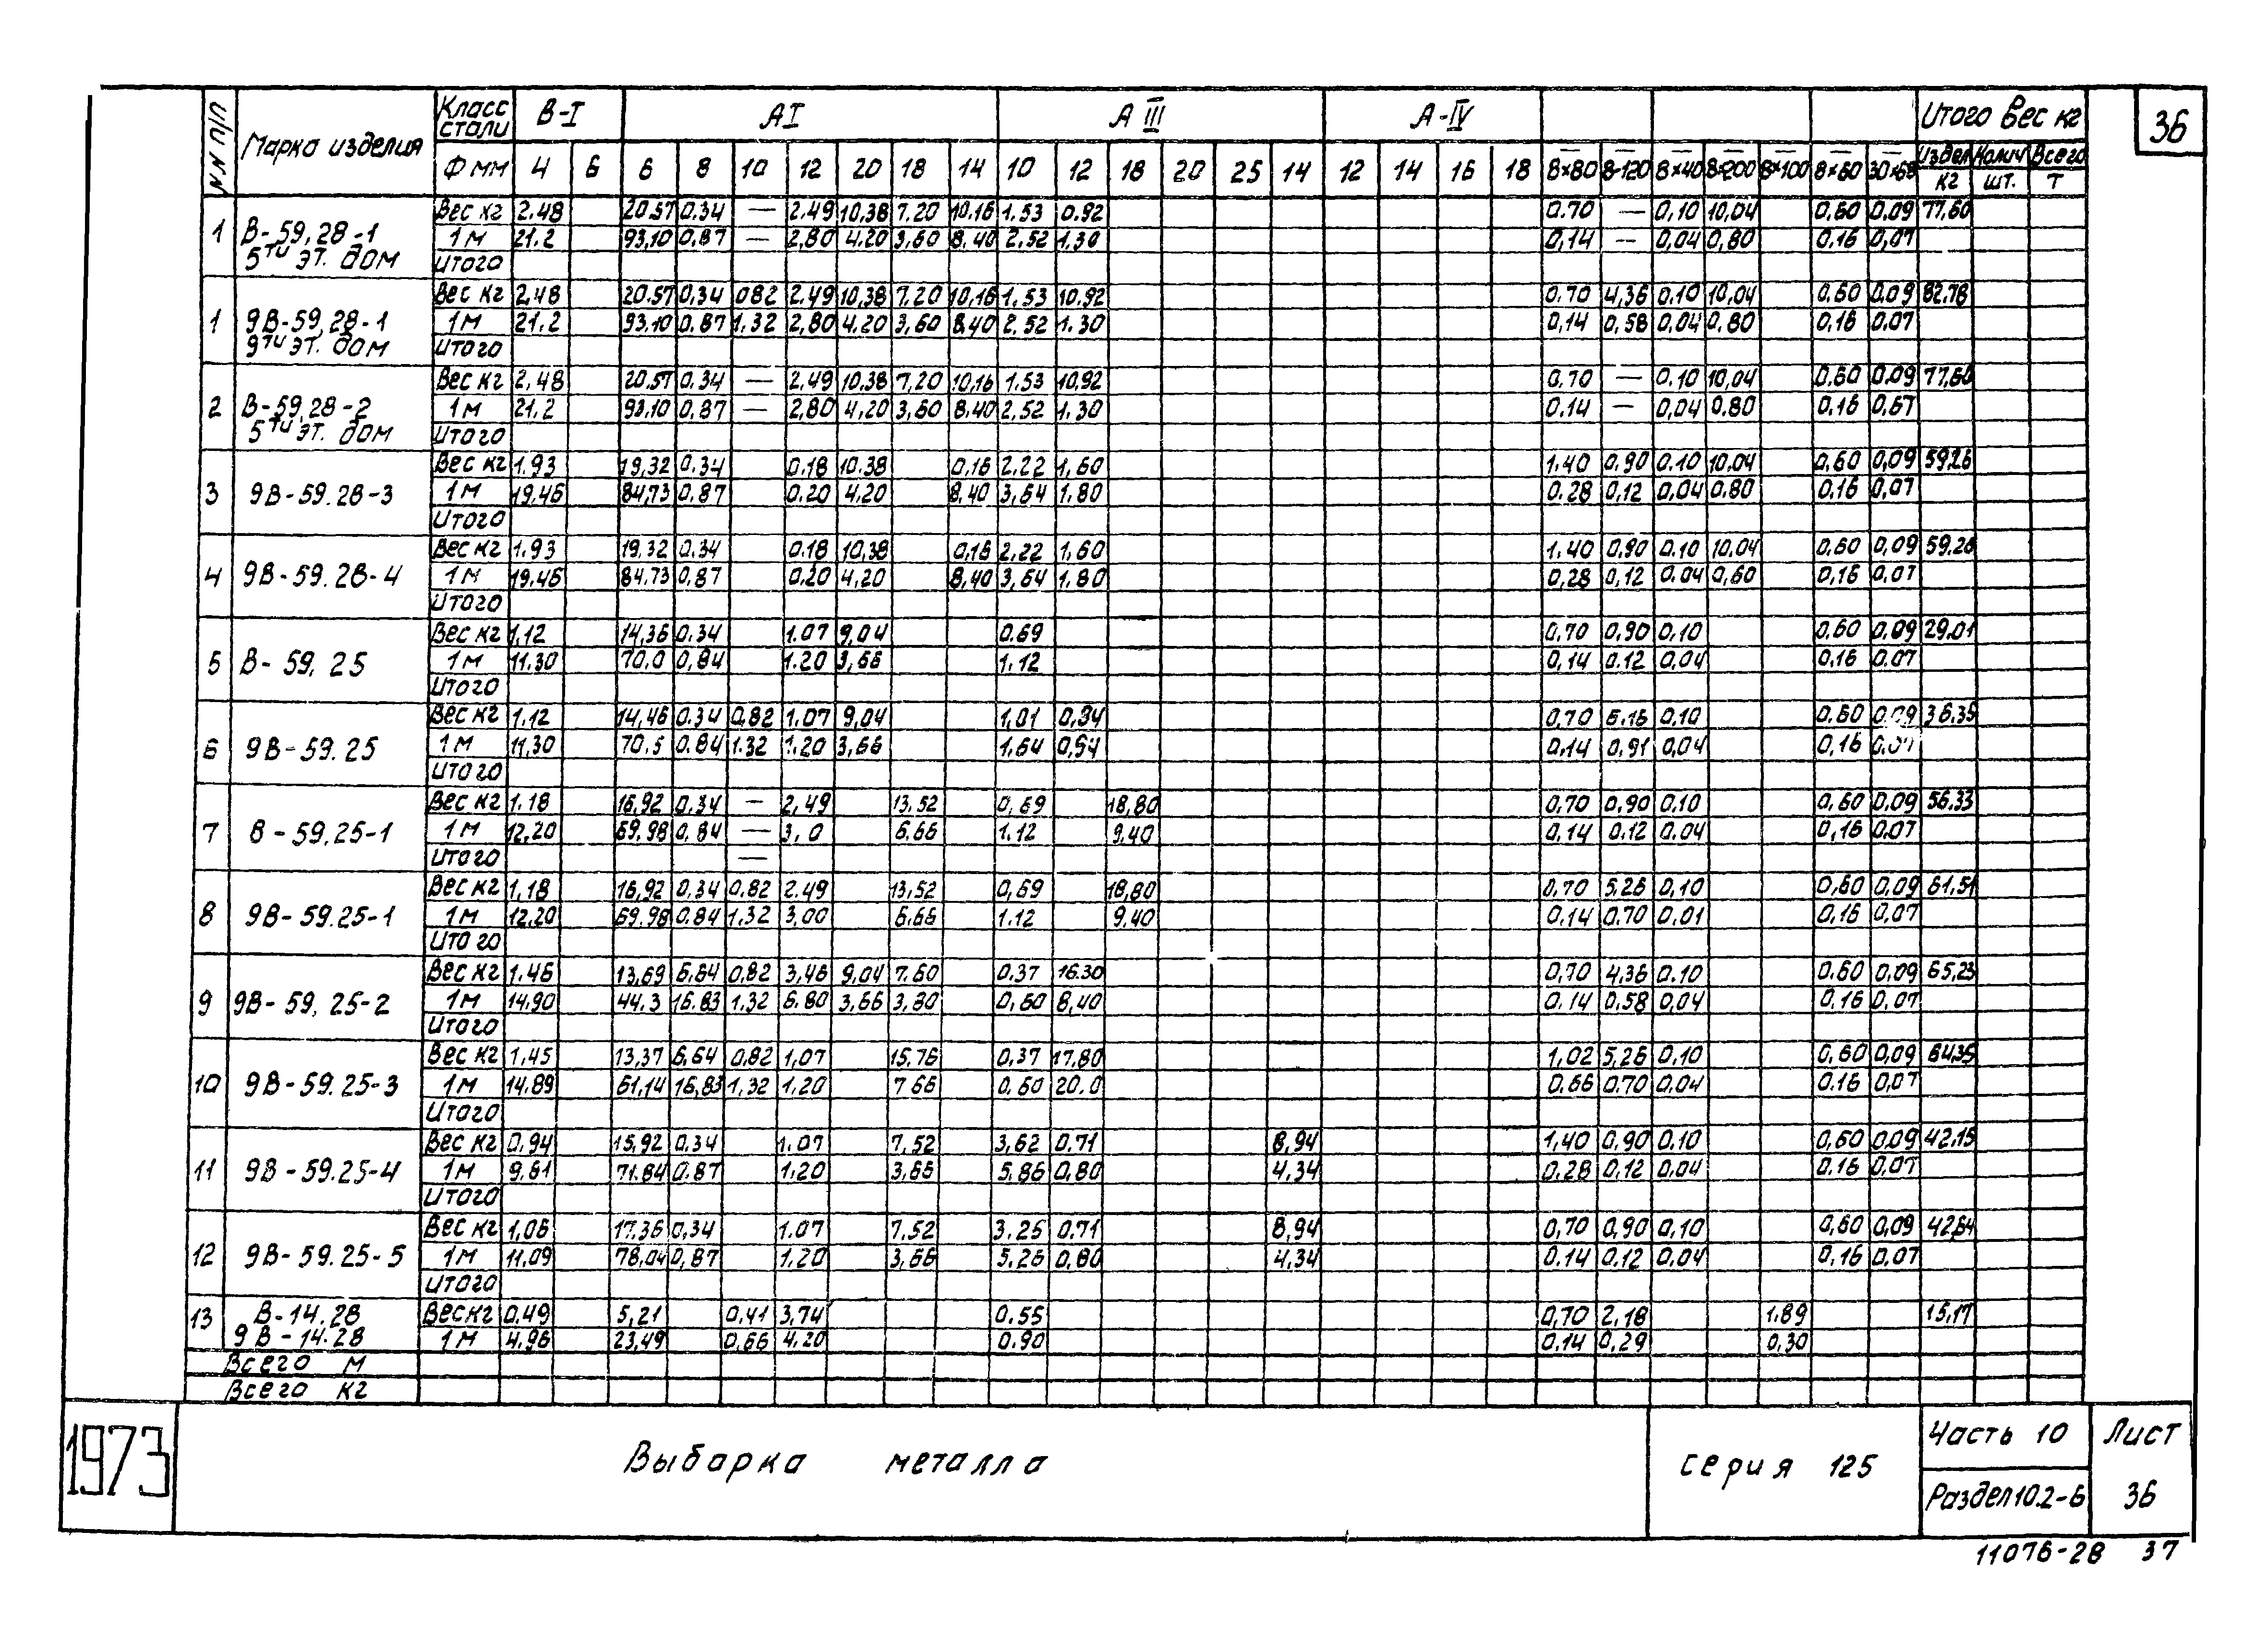 36
N N п/п Марка изделия Класс стали В-I АI А III А-IV Итого Вес кг
Ф мм 4 6 6 8 10 12 20 18 14 10 12 18 20 25 14 12 14 16 18 8×80 8-120 8×40 8×200 8×100 8×60 30×68 Издел кг Колич шт. Всего т
1 В-59,28-1 5ти эт. дом
Вес кг 2.48 20.57 0.34 — 2.49 10,38 7.20 10.16 1.53 0.92 0.70 — 0,10 10,04 0,60 0,09 77,60
1 м 21.2 93,10 0,87 — 2,80 4.20 3,60 8,40 2.52 1.30 0,14 — 0,04 0,80 0,16 0,07
Итого
1 9В-59,28-1 9ти эт. дом
Вес кг 2,48 20.57 0,34 082 2.49 10,38 7.20 10,16 1.53 10.92 0.70 4,36 0.10 10,04 0.60 0.09 82.78
1 м 21.2 93.10 0.87 1.32 2,80 4.20 3,60 8.40 2.52 1.30 0,14 0,58 0,04 0,80 0,16 0,07
Итого
2 В-59,28-2 5ти эт. дом
Вес кг 2,48 20.57 0.34 — 2.49 10.38 7,20 10,16 1.53 10,92 0,70 — 0.10 10,04 0.60 0.09 77,60
1 м 21.2 93,10 0,87 — 2,80 4,20 3,60 8,40 2,52 1.30 0.14 — 0,04 0.80 0.16 0,67
Итого
3 9В-59.28-3
Вес кг 1.93 19,32 0.34 0.18 10.38 0.16 2.22 1,60 1.40 0.90 0.10 10,04 0.60 0,09 59.26
1 м 19.46 84,73 0.87 0.20 4,20 8.40 3,64 1.80 0.28 0,12 0,04 0,80 0,16 0,07
Итого
4 9В-59.28-4
Вес кг 1.93 19,32 0.34 0.18 10,38 0,16 2,22 1,60 1,40 0,90 0.10 10.04 0,60 0,09 59.26
1 м 19.46 84.73 0,87 0,20 4,20 8,40 3,64 1.80 0,28 0,12 0.04 0,60 0,16 0,07
Итого
5 В-59, 25
Вес кг 1,12 14,36 0.34 1.07 9,04 0.69 0,70 0,90 0,10 0,60 0,09 29.01
1 м 11.30 70.0 0,84 1.20 3,66 1.12 0,14 0.12 0,04 0.16 0.07
Итого
6 9В-59.25
Вес кг 1.12 14,46 0.34 0,82 1.07 9,04 1,01 0,34 0,70 5.16 0,10 0.60 0.09 36.35
1 м 11,30 70.5 0.84 1.32 1.20 3,66 1,64 0,94 0.14 0,91 0,04 0,16 0.07
Итого
7 В-59,25-1
Вес кг 1.18 16,92 0.34 — 2,49 13,52 0,69 18,80 0,70 0,90 0,10 0,60 0.09 56.33
1 м 12,20 69.98 0,84 — 3,0 6.66 1.12 9,40 0,14 0,12 0.04 0,16 0.07
Итого —
8 9В-59.25-1
Вес кг 1,18 16,92 0,34 0,82 2.49 13.52 0,69 18,80 0,70 5.26 0,10 0,60 0.09 61.51
1 м 12,20 69.98 0.84 1.32 3,00 6.66 1.12 9,40 0.14 0.70 0.01 0.16 0,07
Итого
9 9В-59, 25-2
Вес кг 1.46 13,69 6,64 0,82 3,46 9,04 7.60 0.37 16.30 0,70 4,36 0.10 0.60 0.09 65,23
1 м 14.90 44.3 16.83 1,32 6.80 3,66 3,80 0,60 8,40 0.14 0.58 0,04 0.16 0,07
Итого
10 9В-59.25-3
Вес кг 1,45 13,37 6,64 0,82 1,07 15.76 0.37 17.80 1,02 5,26 0,10 0,60 0,09 64.35
1 м 14.89 61,14 16,83 1,32 1.20 7.66 0.60 20.0 0.66 0.70 0,04 0.16 0,07
Итого
11 9В-59.25-4
Вес кг 0.94 15,92 0.34 1.07 7,52 3,62 0.71 8,94 1,40 0,90 0.10 0,60 0.09 42.15
1 м 9.81 71.84 0.87 1.20 3,66 5.86 0,80 4,34 0.28 0,12 0,04 0.16 0,07
Итого
12 9В-59.25-5
Вес кг 1,06 17.36 0,34 1.07 7,52 3.25 0.71 8,94 0,70 0,90 0,10 0,60 0,09 42,64
1 м 11.09 78,04 0,87 1.20 3,66 5.26 0,80 4,34 0.14 0.12 0,04 0,16 0,07
Итого
13 В-14.28 9В-14.28
Вес кг 0,49 5,21 0,41 3,74 0.55 0,70 2,18 1.89 15,17
1 м 4.96 23,49 0,66 4.20 0.90 0.14 0,29 0,30
Всего м
Всего кг
1973 Выборка металла серия 125 Часть 10 Раздел 10.2-6 Лист 36
11076-28 37